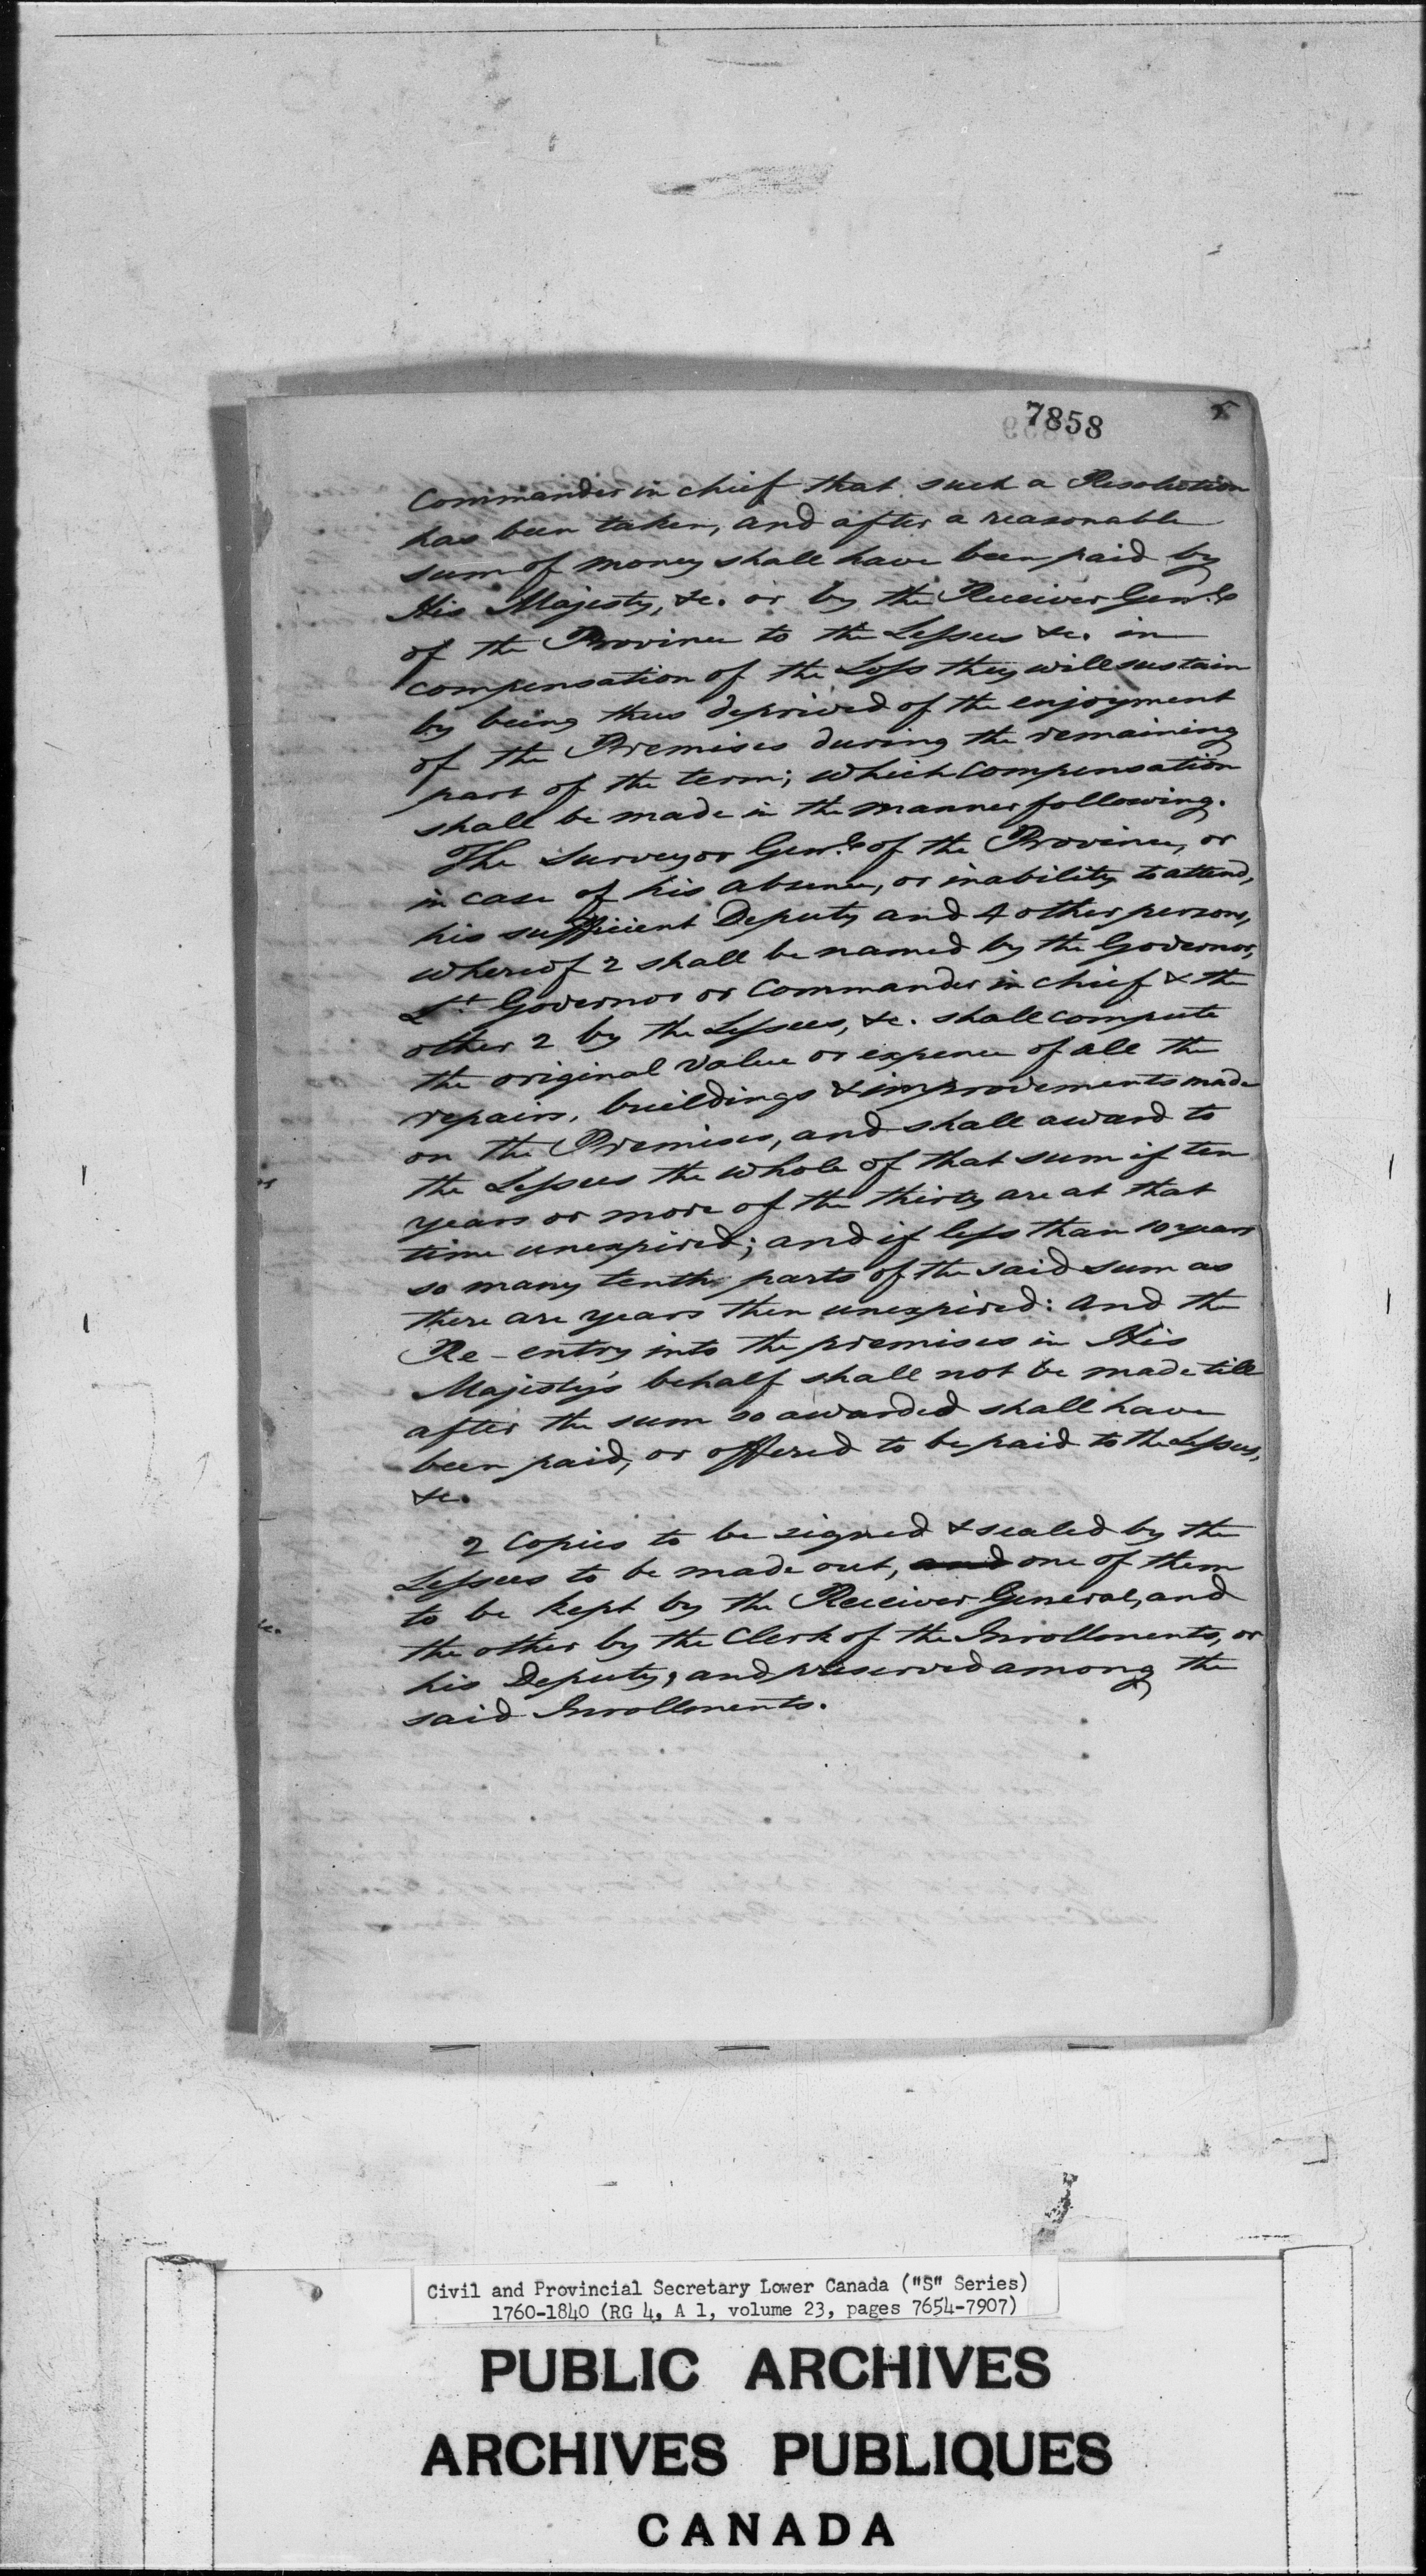 7858
Commander in chief that such a Resolution
has been taken, and after a reasonable
sum of money shall have been paid by
His Majesty, &c. or by the Receiver Genl.
of the Province to the Lessees &c. in
compensation of the Loss they will sustain
by being thus deprived of the enjoyment
of the Premises during the remaining
part of the term; which compensation
shall be made in the manner following.
The Surveyor Genl. of the Province, or
in case of his absence, or inability to attend,
his sufficient Deputy and 4 other persons,
whereof 2 shall be named by the Governor,
Lt. Governor or Commander in chief & the
other 2 by the Lessees, &c. shall compute
the original value or expence of all the
repairs, buildings & improvements made
on the Premises, and shall award to
the Lessees the whole of that sum if ten
years or more of the thirty are at that
time unexpired; and if less than 10 years
so many tenth parts of the said sum as
there are years then unexpired: and the
Re-entry into the premises in His
Majesty's behalf shall not be made till
after the sum so awarded shall have
been paid, or offered to be paid to the Lessees,
&c.
2 Copies to be signed & sealed by the
Lessees to be made out, and one of them
to be kept by the Receiver General, and
the other by the Clerk of the Inrollments, or
his Deputy, and preserved among the
said Inrollments.
Civil and Provincial Secretary Lower Canada ("S" Series)
1760-1840 (RG 4, A 1, volume 23, pages 7654-7907)
PUBLIC ARCHIVES
ARCHIVES PUBLIQUES
CANADA